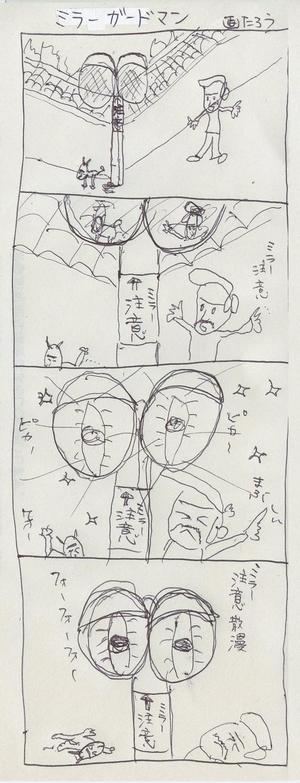 ミラーガードマン
画たろう
注意
ミラー
注意
↑ミラー
注意
ピカ〜
ピカ〜
まぶしい
↑ミラー
注意
ミラー
注意散漫
フォーフォーフォー
↑ミラー
注意